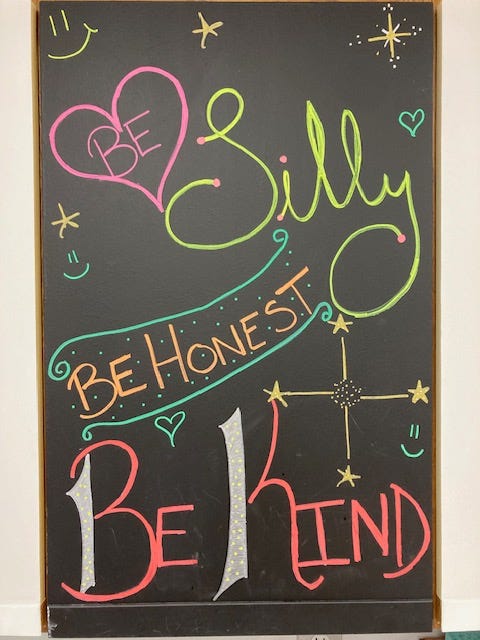 BE Silly
BE HONEST
BE KIND